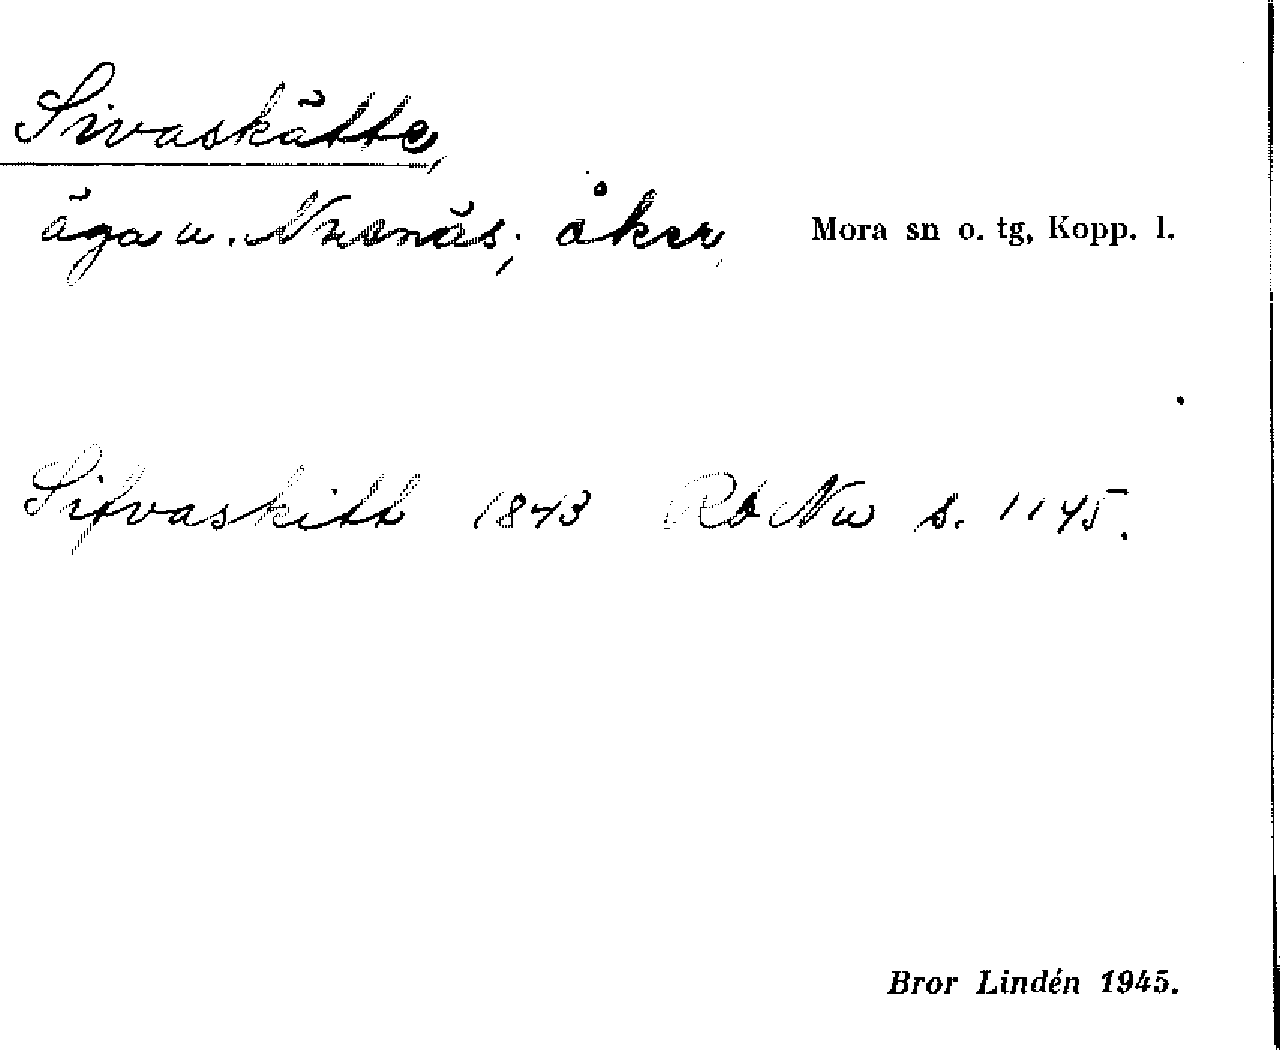 Sivaskätte,
äga u. Nusnäs; åker Mora sn o. tg, Kopp. l.
Sifvaskitt 1843 Rb Nu s. 1145.
Bror Lindén 1945.